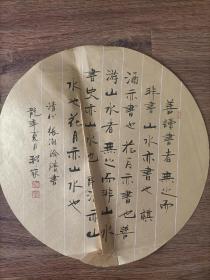 善讀書者無之而
非書山水亦書也棋
酒亦書也花月亦書也善
游山水者無之而非山水
書史亦山水也詩酒亦山
水也花月亦山水也
清代張潮論書
龍年夏月